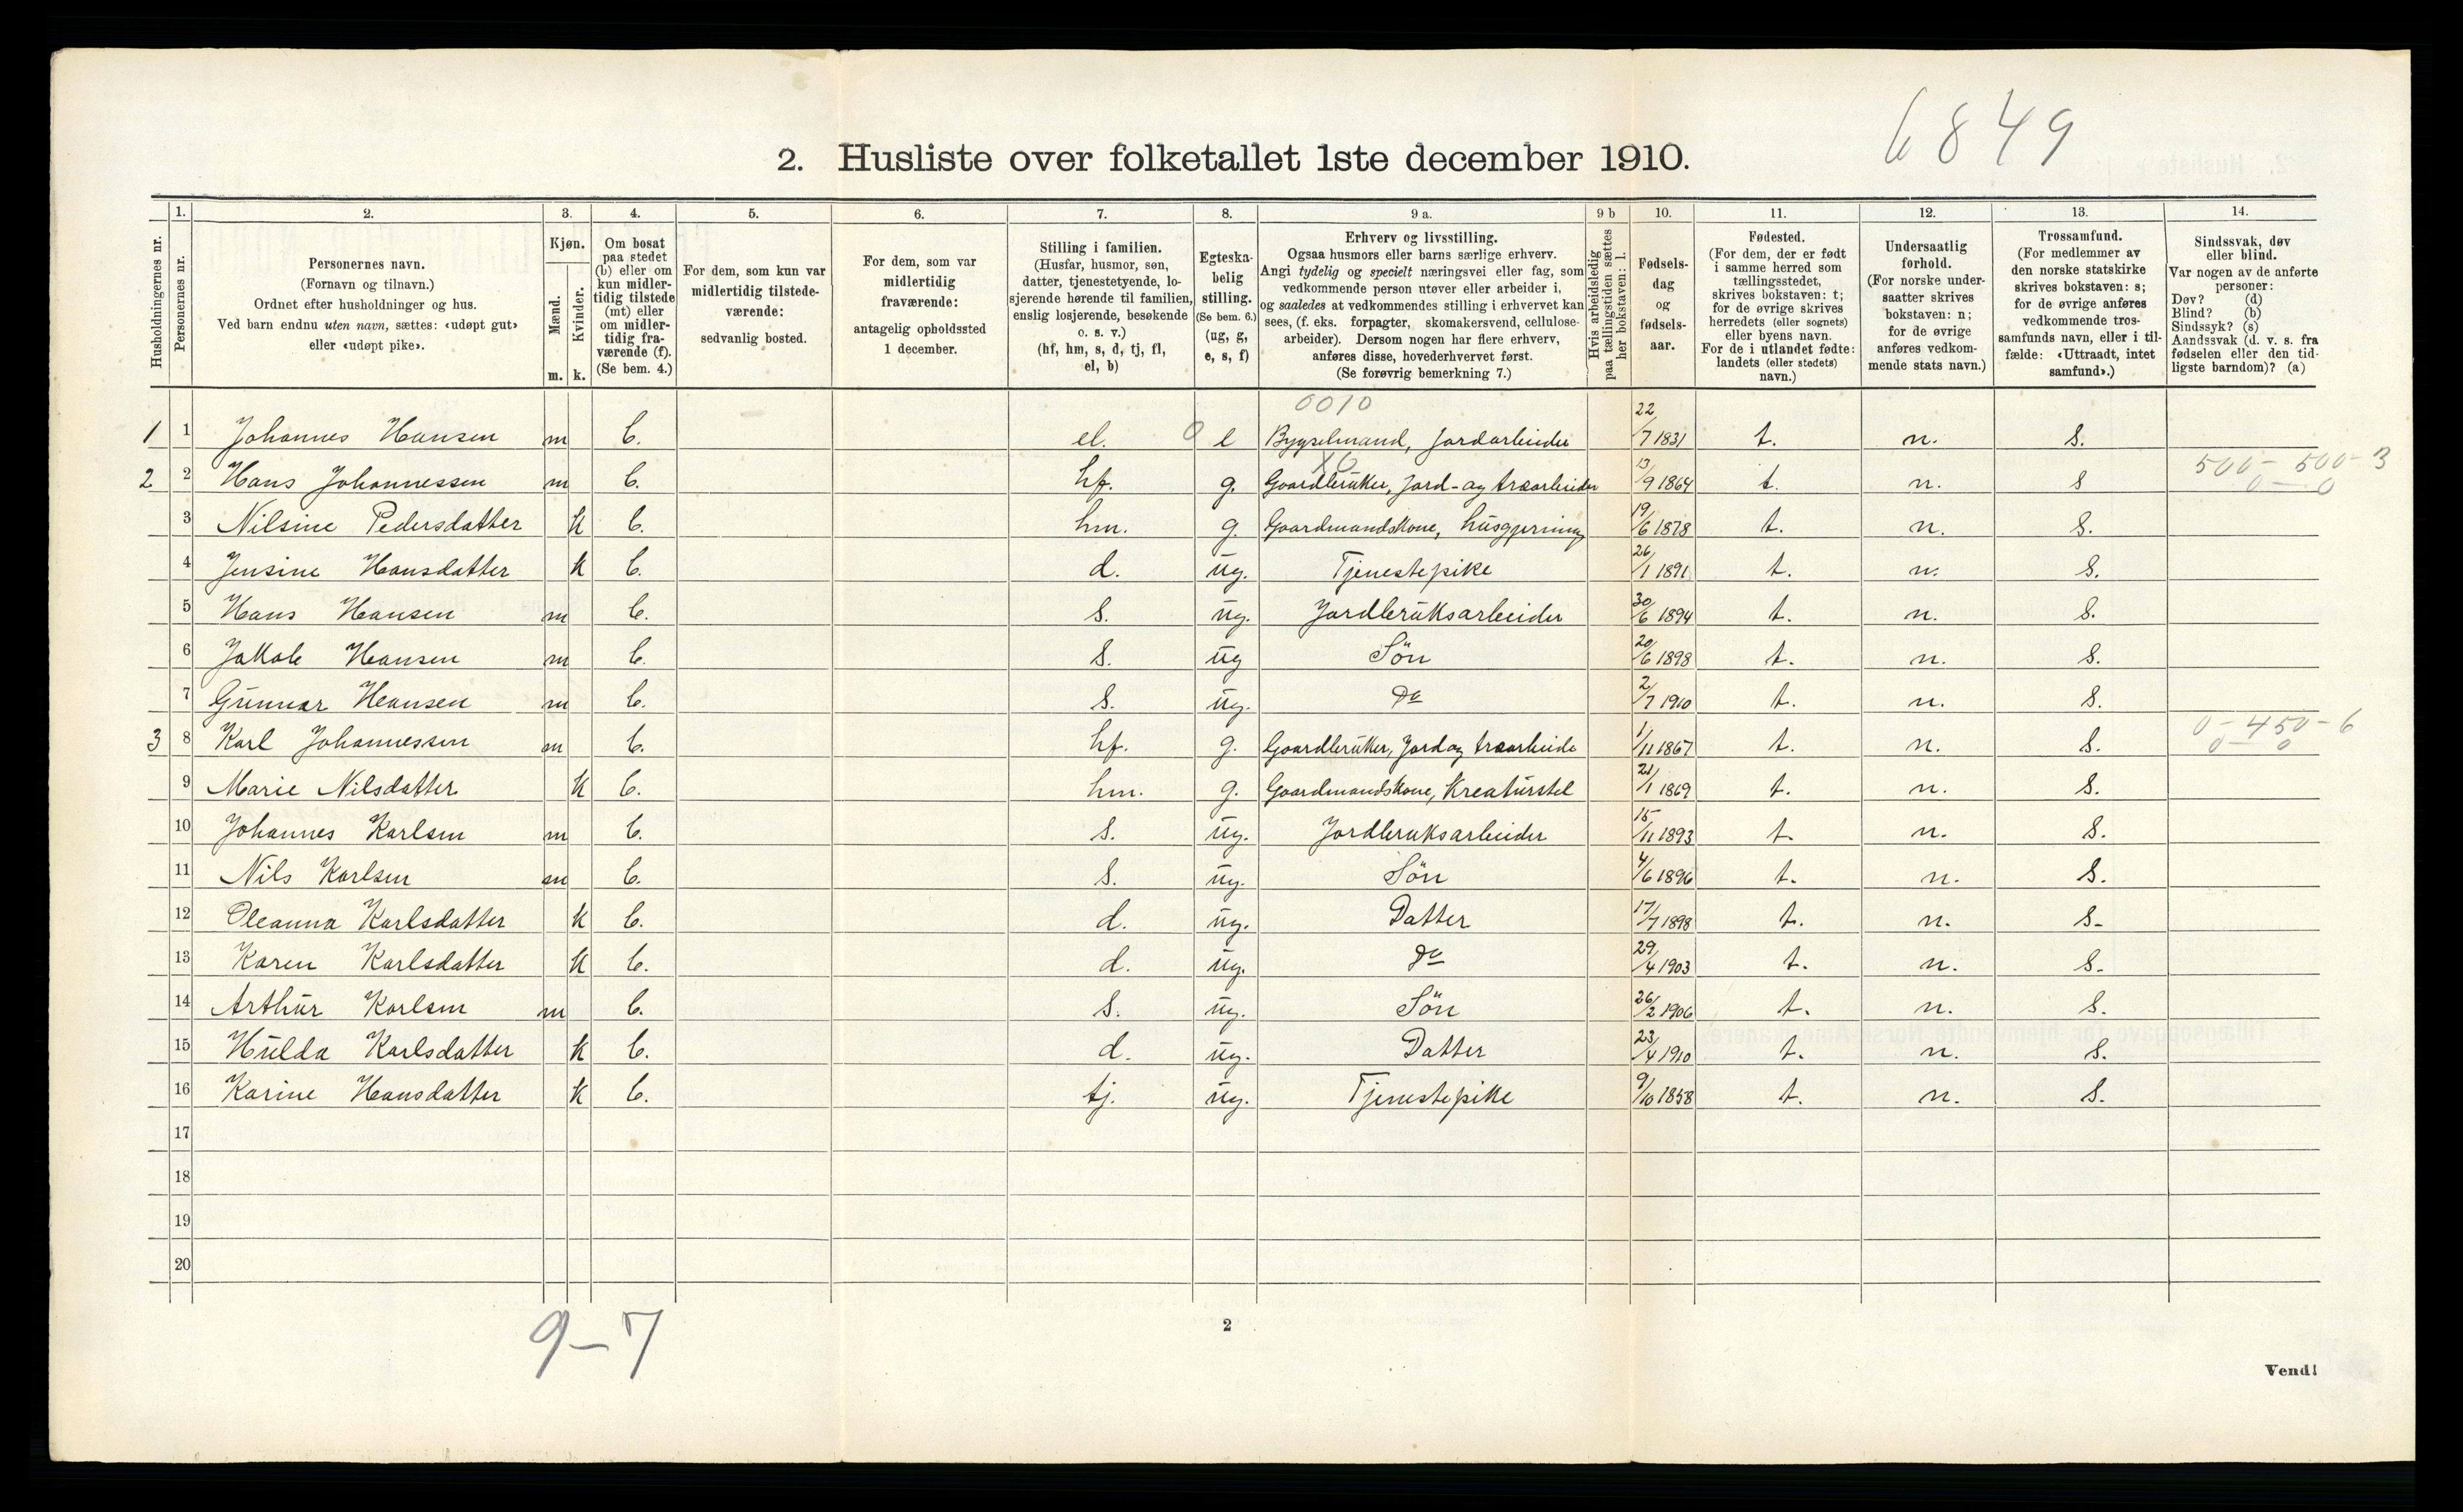 6849
2. Husliste over folketallet 1ste december 1910.
Husholdningernes nr.
1. Personernes nr.
2. Personernes navn. (Fornavn og tilnavn.) Ordnet efter husholdninger og hus. Ved barn endnu uten navn, sættes: «udøpt gut» eller «udøpt pike».
3. Kjøn. Mænd. m. Kvinder. k.
4. Om bosat paa stedet (b) eller om kun midlertidig tilstede (mt) eller om midlertidig fraværende (f). (Se bem. 4.)
5. For dem, som kun var midlertidig tilstedeværende: sedvanlig bosted.
6. For dem, som var midlertidig fraværende: antagelig opholdssted 1 december.
7. Stilling i familien. (Husfar, husmor, søn, datter, tjenestetyende, losjerende hørende til familien, enslig losjerende, besøkende o. s. v.) (hf, hm, s, d, tj, fl, el, b)
8. Egteskabelig stilling. (Se bem. 6.) (ug, g, e, s, f)
9 a. Erhverv og livsstilling. Ogsaa husmors eller barns særlige erhverv. Angi tydelig og specielt næringsvei eller fag, som vedkommende person utøver eller arbeider i, og saaledes at vedkommendes stilling i erhvervet kan sees, (f. eks. forpagter, skomakersvend, cellulosearbeider). Dersom nogen har flere erhverv, anføres disse, hovederhvervet først. (Se forøvrig bemerkning 7.)
9 b Hvis arbeidsledig paa tællingstiden sættes her bokstaven: l.
10. Fødselsdag og fødselsaar.
11. Fødested. (For dem, der er født i samme herred som tællingsstedet, skrives bokstaven: t; for de øvrige skrives herredets (eller sognets) eller byens navn. For de i utlandet fødte: landets (eller stedets) navn.)
12. Undersaatlig forhold. (For norske undersaatter skrives bokstaven: n; for de øvrige anføres vedkommende stats navn.)
13. Trossamfund. (For medlemmer av den norske statskirke skrives bokstaven: s; for de øvrige anføres vedkommende trossamfunds navn, eller i tilfælde: «Uttraadt, intet samfund».)
14. Sindssvak, døv eller blind. Var nogen av de anførte personer: Døv? (d) Blind? (b) Sindssyk? (s) Aandssvak (d. v. s. fra fødselen eller den tidligste barndom)? (a)
0010
1 1 Johannes Hansen m b. el. 0 e Bygselmand, Jordarbeider 22/7 1831 t. n. S.
2 2 Hans Johannessen m b. hf. g. Gaardbruker, Jord- og træarbeider 13/9 1864 t. n. S 500- 500-3 0-0
3 Nilsine Pedersdatter k b. hm. g. Gaardmandskone, husgjerning 19/6 1878 t. n. S.
4 Jensine Hansdatter k b. d. ug. Tjenestepike 26/1 1891 t. n. S.
5 Hans Hansen m b. s. ug. Jordbruksarbeider 30/6 1894 t. n. S.
6 Jakob Hansen m b. s. ug Sön 20/6 1898 t. n. S.
7 Gunnar Hansen m b. s. ug. do 2/7 1910 t. n. S.
3 8 Karl Johannessen m b. hf. g. Gaardbruker, Jord og træarbeide 1/11 1867 t. n. S. 0-450-6 0-0
9 Marie Nilsdatter k b. hm. g. Gaardmandskone, Kreaturstel 21/1 1869 t. n. S.
10 Johannes Karlsen m b. s. ug. Jordbruksarbeider 15/11 1893 t. n. S.
11 Nils Karlsen m b. s. ug. Sön 4/6 1896 t. n. S.
12 Oleanna Karlsdatter k b. d. ug. Datter 17/7 1898 t. n. S.
13 Karen Karlsdatter k b. d. ug. do 29/4 1903 t. n. S.
14 Arthur Karlsen m b. s. ug. Sön 26/2 1906 t. n. S.
15 Hulda Karlsdatter k b. d. ug. Datter 23/4 1910 t. n. S.
16 Karine Hansdatter k b. tj. ug. Tjenestepike 9/10 1858 t. n. S.
17
18
19
20
9-7
2
Vend!